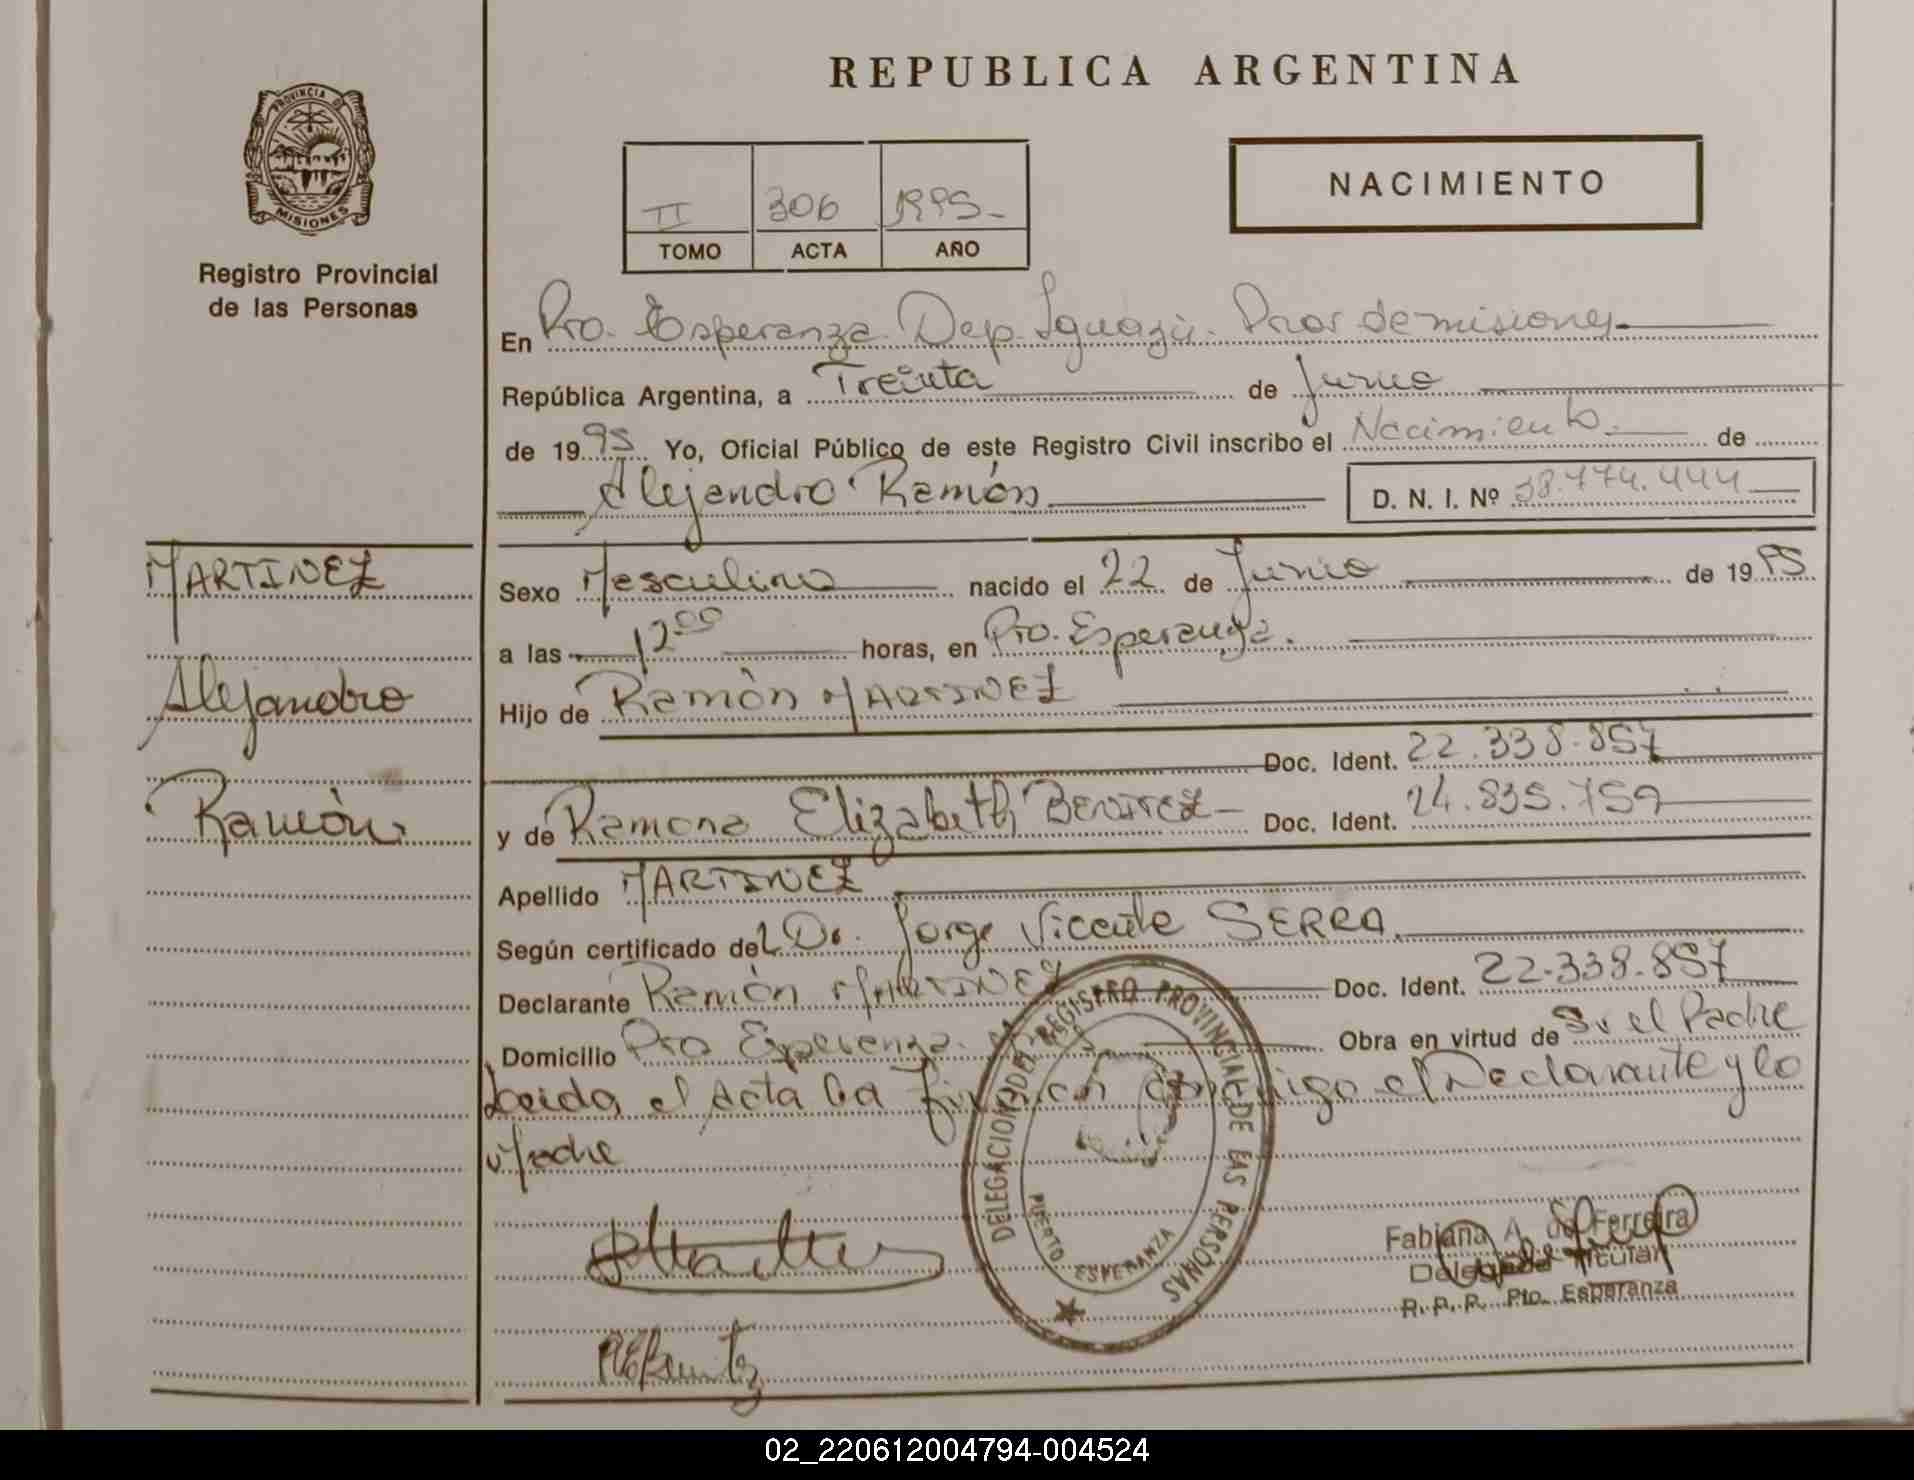 REPUBLICA ARGENTINA
PROVINCIA DE
MISIONES
Registro Provincial
de las Personas
NACIMIENTO
II 306 1995-
TOMO ACTA AÑO
En Pto. Esperanza Dep. Iguazú. de misiones
República Argentina, a Treinta de Junio
de 1995 Yo, Oficial Público de este Registro Civil inscribo el Nacimiento. de
Alejandro Ramón
D. N. I. Nº 38.774.444
MARTINEZ
Alejandro
Ramón
Sexo Masculino nacido el 22 de Junio de 1995
a las 12 00 horas, en Pto. Esperanza.
Hijo de Ramón MARTINEZ
Doc. Ident. 22.338.857
y de Ramona Elizabeth BENITEZ Doc. Ident. 24.835.759
Apellido MARTINEZ
Según certificado del Dr. Jorge Vicente SERRA.
Declarante Ramón MARTINEZ Doc. Ident. 22.338.857
Domicilio Pto Esperanza. Obra en virtud de Sr el Padre
Leida el Acta la firman conmigo el Declarante y la
Madre
DELEGACION DEL REGISTRO PROVINCIAL DE LAS PERSONAS
PUERTO ESPERANZA
Fabiana A. de Ferreira
Delegada Titular
R. P. P. Pto. Esperanza
REBenitez
02_220612004794-004524